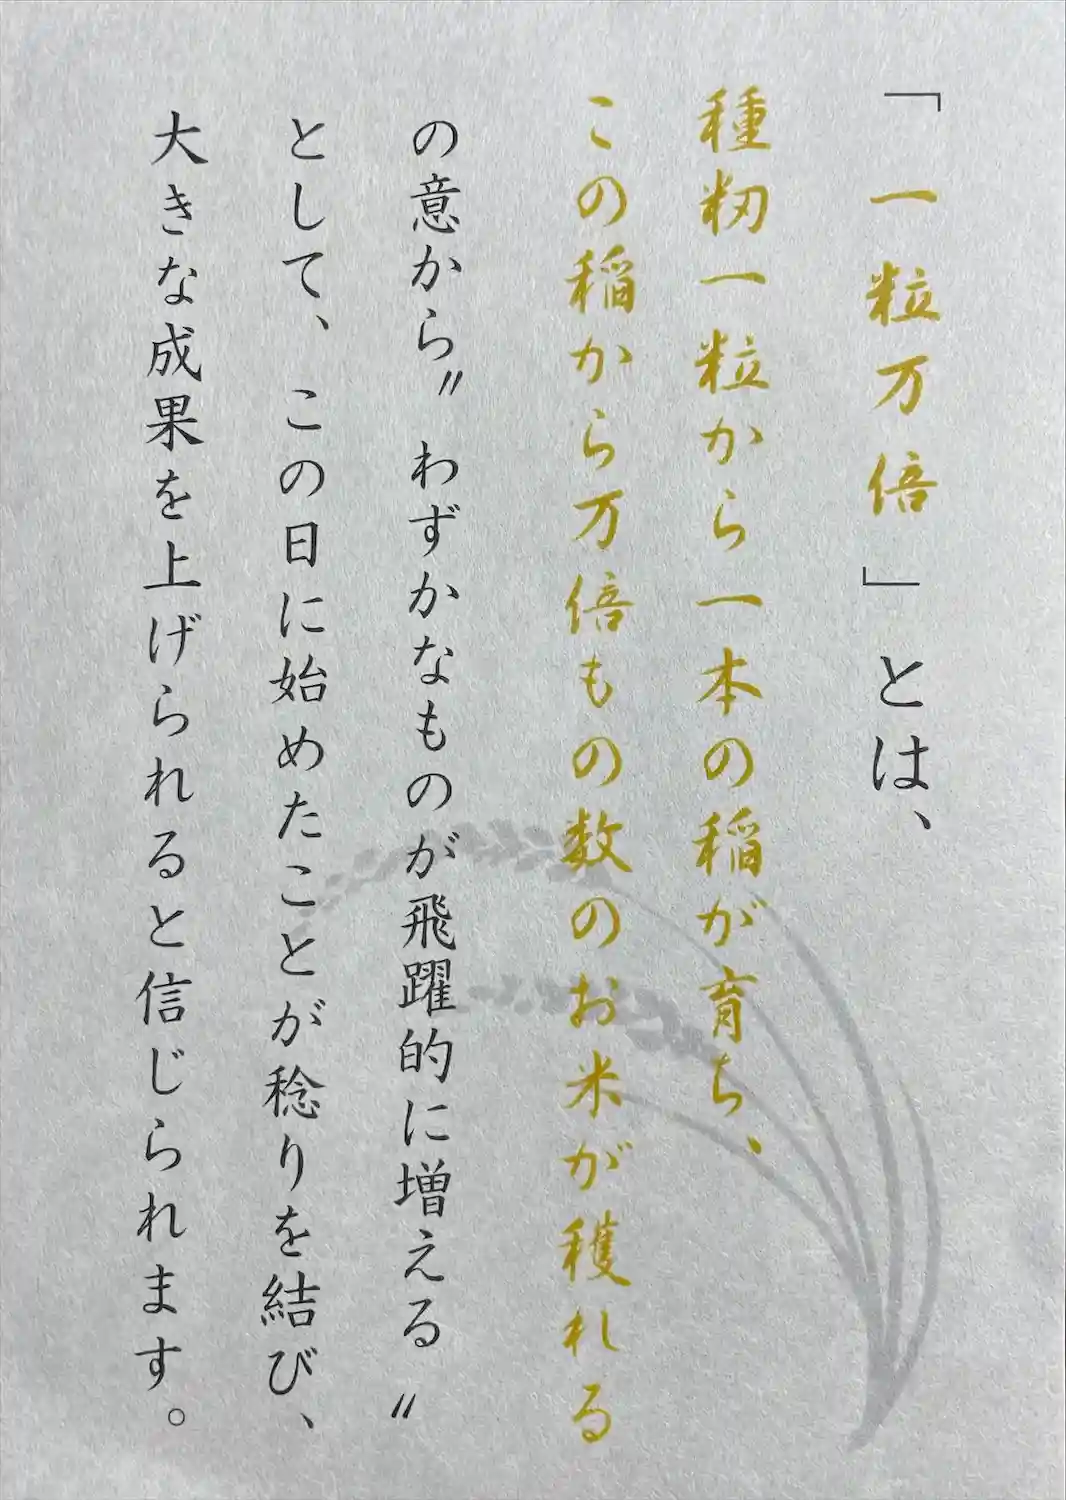 「一粒万倍」とは、
種籾一粒から一本の稲が育ち、
この稲から万倍もの数のお米が穫れる
の意から〃わずかなものが飛躍的に増える〃
として、この日に始めたことが稔りを結び、
大きな成果を上げられると信じられます。